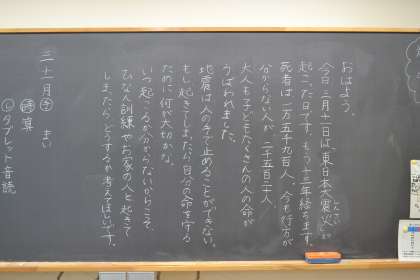 おはよう。
今日三月十一日は、東日本大震災が
起こった日です。もう十三年経ちます。
死者は一万五千九百人、今も行方が
分からない人が二千五百二十人
大人も子どももたくさんの人の命が
うばわれました。
地震は人の手で止めることができない。
もし起きてしまったら自分の命を守る
ために何が大切かな。
いつ起こるか分からないからこそ、
ひなん訓練やお家の人と起きて
しまったらどうするか考えてほしいです。
三・十一月
まい
タブレット音読